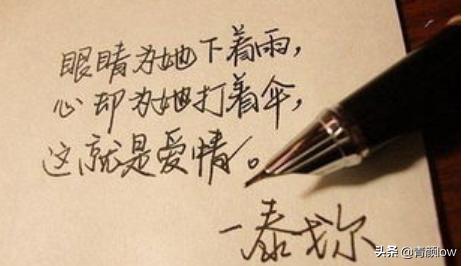 眼睛为她下着雨，
心却为她打着伞，
这就是爱情。
—泰戈尔
头条 @青颜low